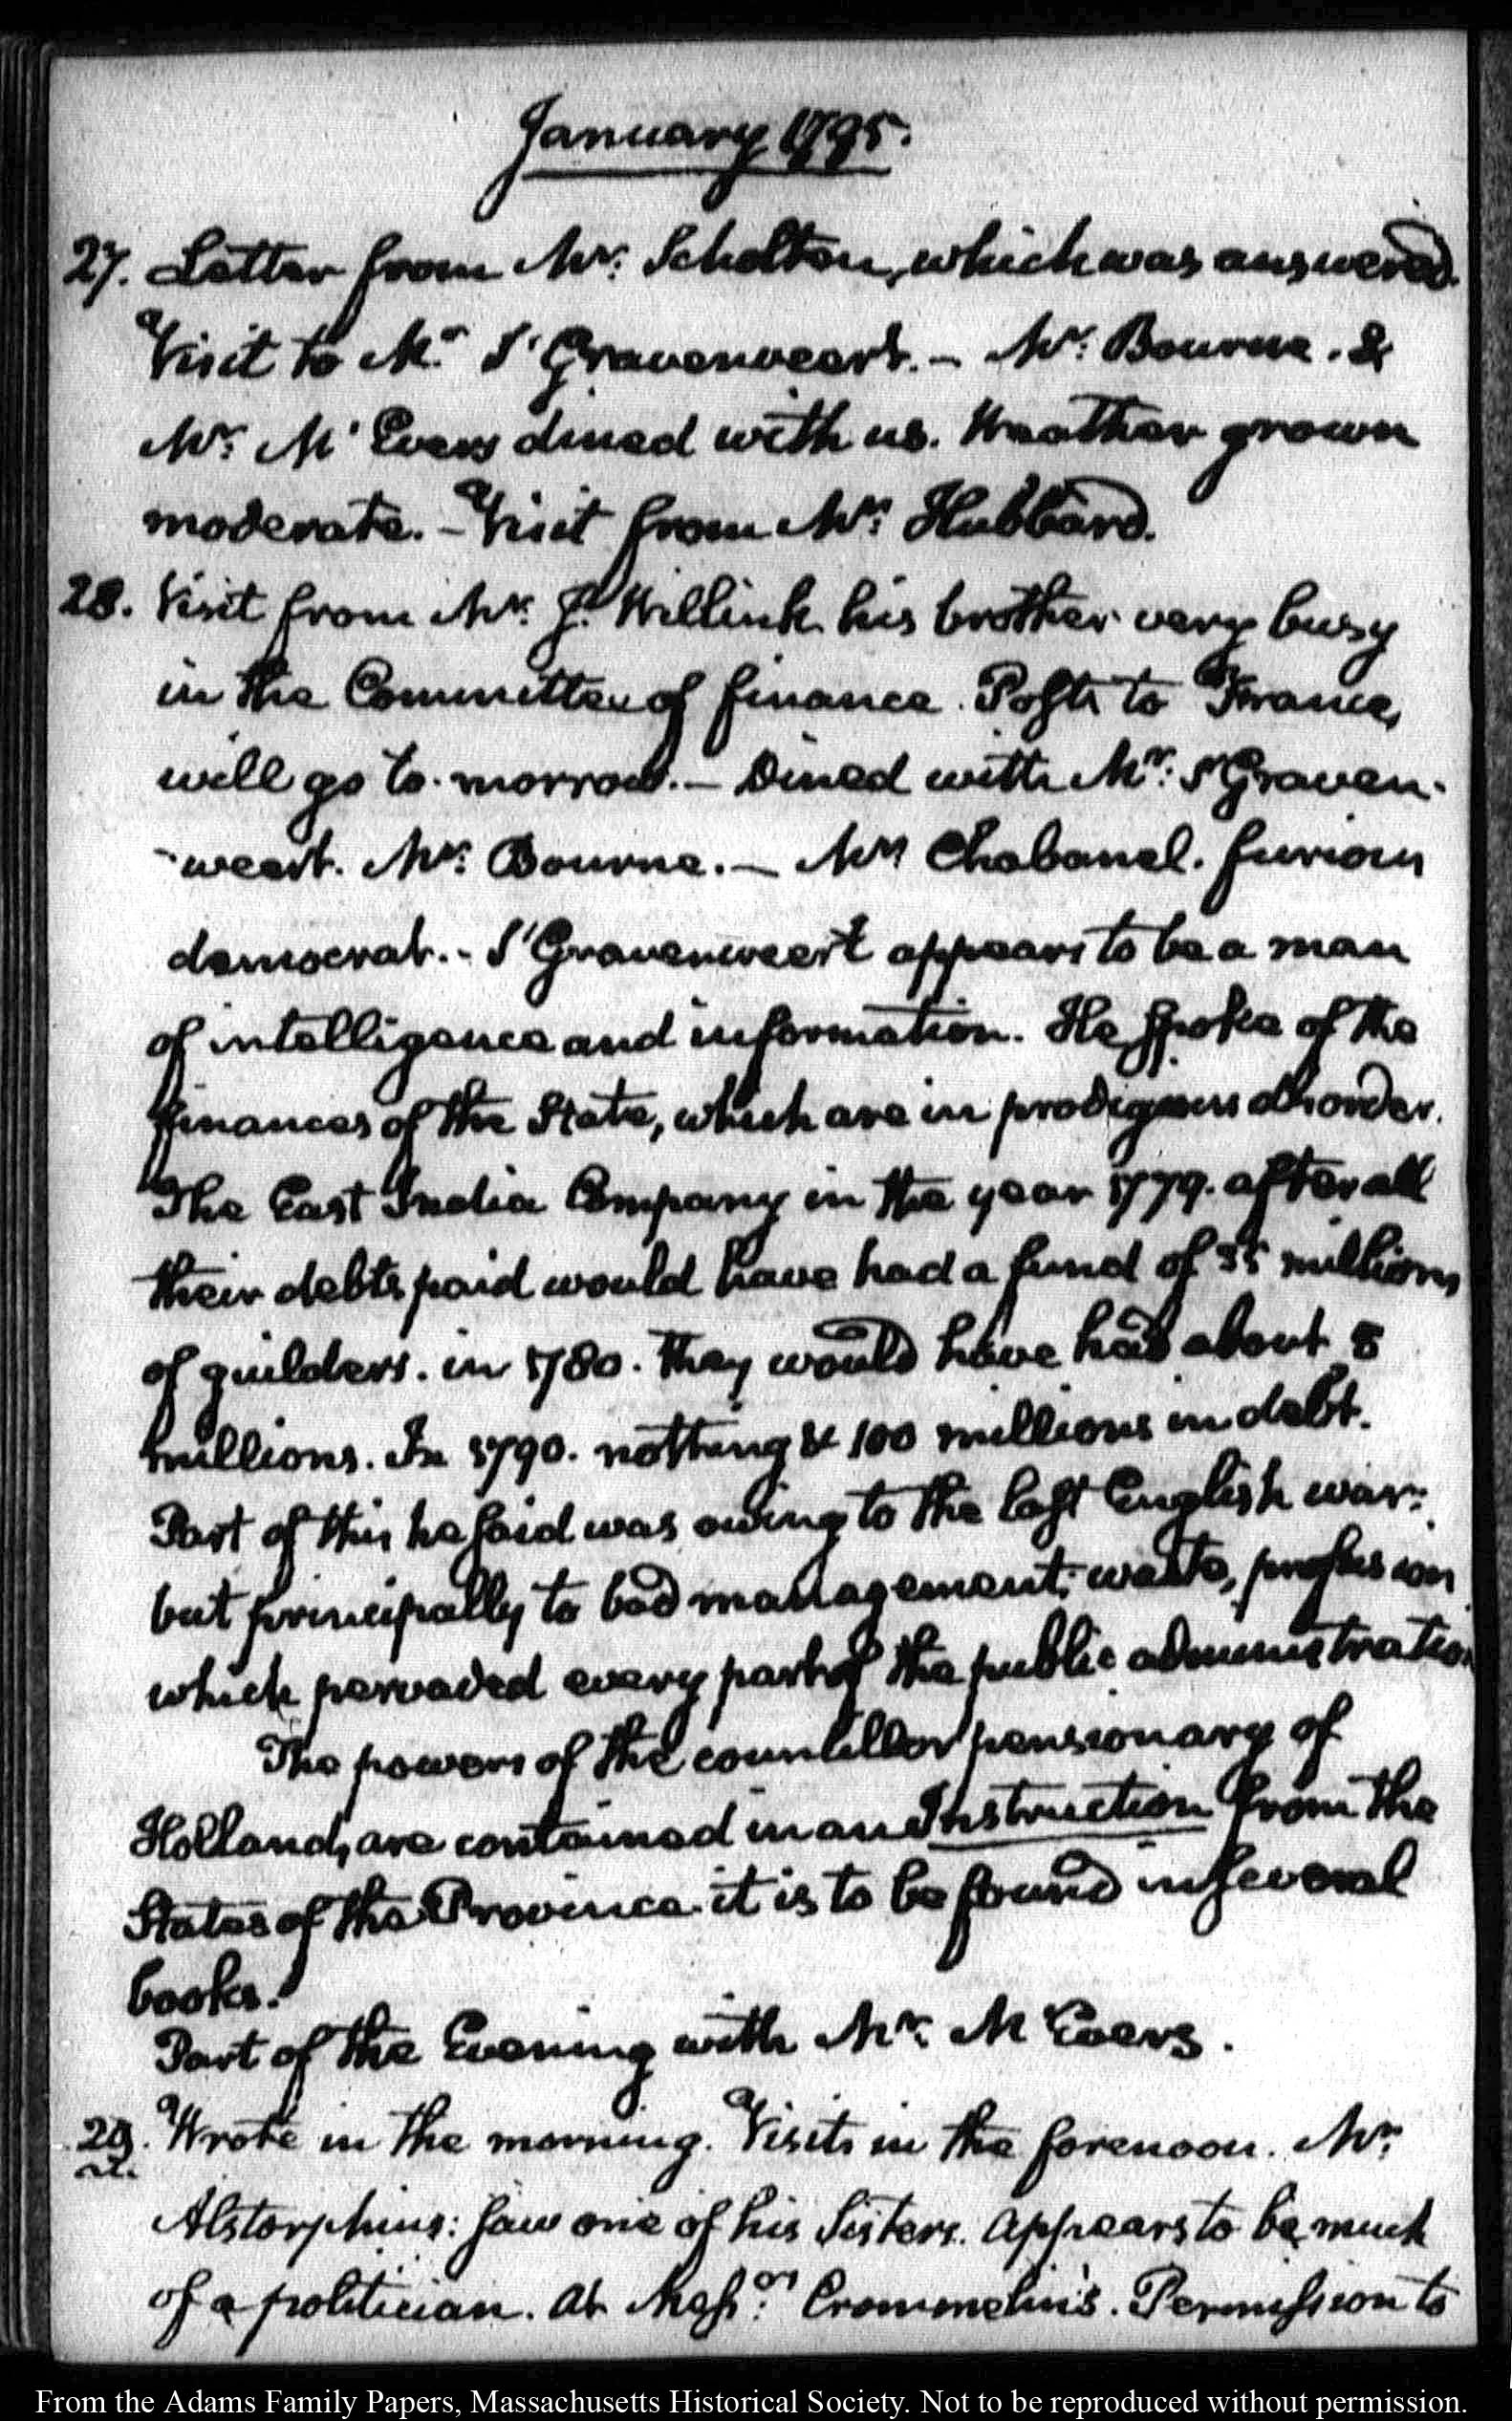 January 1795.
27. Letter from Mr. Scholten, which was answered.
Visit to Mr. S'Gravenweert. – Mr. Bourne. &
Mr. Mc Evers dined with us. Weather grown
moderate. – Visit from Mr. Hubbard.
28. Visit from Mr. J. Willink his brother very busy
in the Committee of finance. Posts to France,
will go to-morrow. – Dined with Mr. S'Graven-
-weert. Mr. Bourne. – Mr. Chabanel. furious
democrat. – S'Gravenweert appears to be a man
of intelligence and information. He spoke of the
finances of the State, which are in prodigious disorder.
The East India Company in the year 1779. after all
their debts paid would have had a fund of 35 millions
of guilders. in 1780. they would have had about 8
millions. In 1790. nothing & 100 millions in debt.
Part of this he said was owing to the last English war:
but principally to bad management, waste, profusion
which pervaded every part of the public administration
The powers of the counsellor pensionary of
Holland, are contained in an Instruction from the
States of the Province. it is to be found in several
books.
Part of the Evening with Mr. Mc Evers.
29. Wrote in the morning. Visits in the forenoon. Mr.
Alstorphius: saw one of his Sisters. appears to be much
of a politician. at Messrs. Crommelin's. Permission to
From the Adams Family Papers, Massachusetts Historical Society. Not to be reproduced without permission.